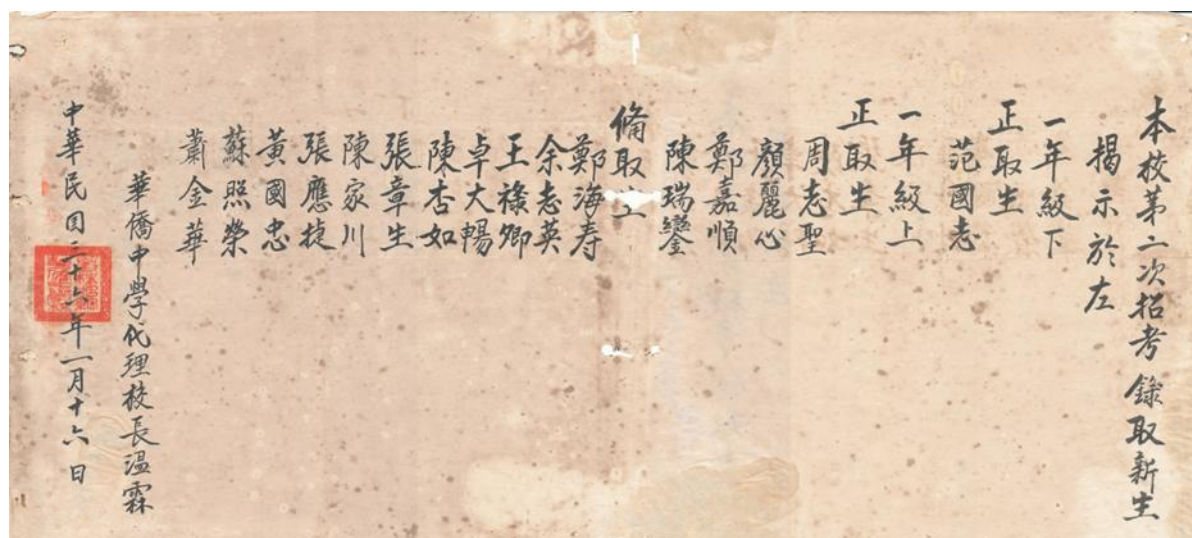 本校第二次招考錄取新生
揭示於左
一年級下
正取生
范國志
一年級上
正取生
周志聖
顏麗心
鄭嘉順
陳瑞鑾
備取生
鄭海寿
余志英
王祿卿
卓大暢
陳杏如
張章生
陳家川
張應捷
黃國忠
蘇照榮
蕭金華
華僑中學代理校長溫霖
中華民国二十六年一月十六日